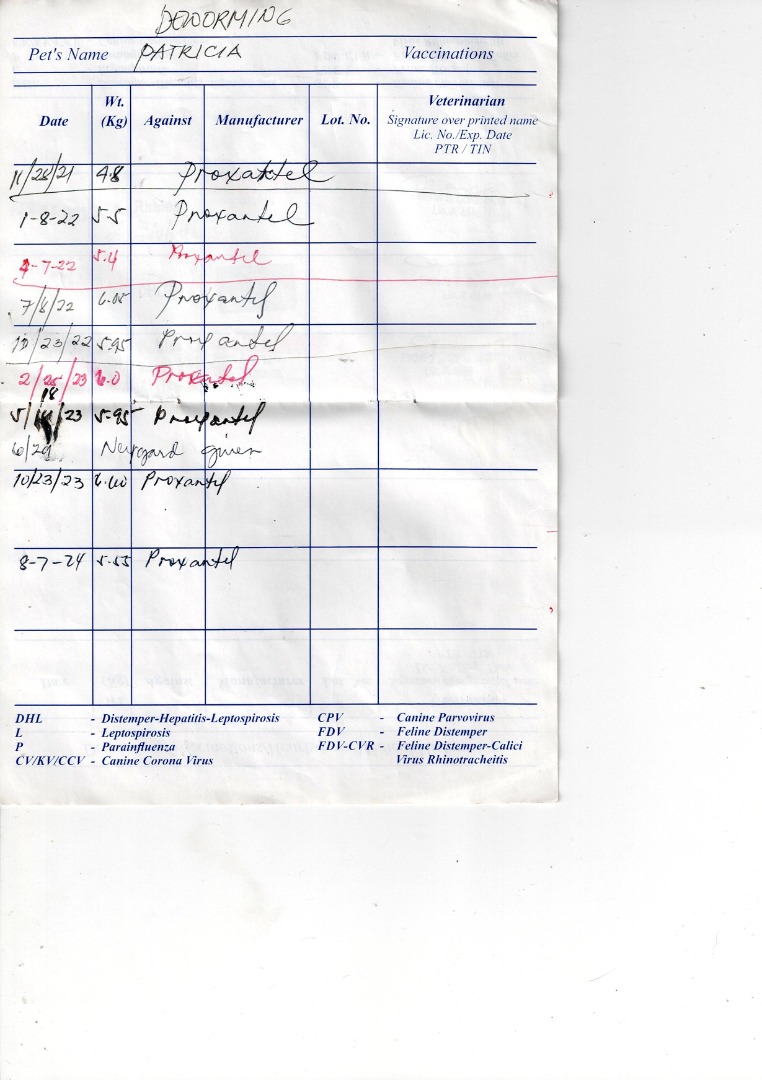 DEWORMING
Pet's Name PATRICIA Vaccinations
Date Wt. (Kg) Against Manufacturer Lot. No. Veterinarian
Signature over printed name
Lic. No./Exp. Date
PTR / TIN
11/28/21 4.8 Proxantel
1-8-22 5.5 Proxantel
-7-22 5.4 Proxantel
7/8/22 6.05 Proxantel
10/23/22 5.95 Proxantel
2/25/23 6.0 Proxantel
5/18/23 5.95 Proxantel
6/29 Nexgard given
10/23/23 6.60 Proxantel
8-7-24 5.55 Proxantel
DHL - Distemper-Hepatitis-Leptospirosis CPV - Canine Parvovirus
L - Leptospirosis FDV - Feline Distemper
P - Parainfluenza FDV-CVR - Feline Distemper-Calici
CV/KV/CCV - Canine Corona Virus Virus Rhinotracheitis